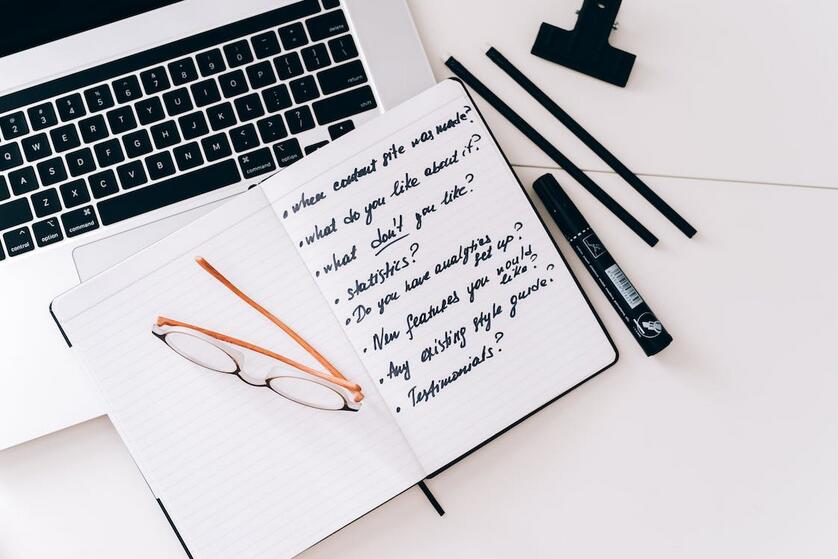 2 3 4 5 6 7 8 9 0 delete
Q W E R T Y U I O P return
A S D F G H J K L
Z X C V B N M
control option command command option
• when content site was made?
• what do you like about it?
• what don't you like?
• statistics?
• Do you have analytics
set up?
• New features you would
like?
• Any existing style guide?
• Testimonials?